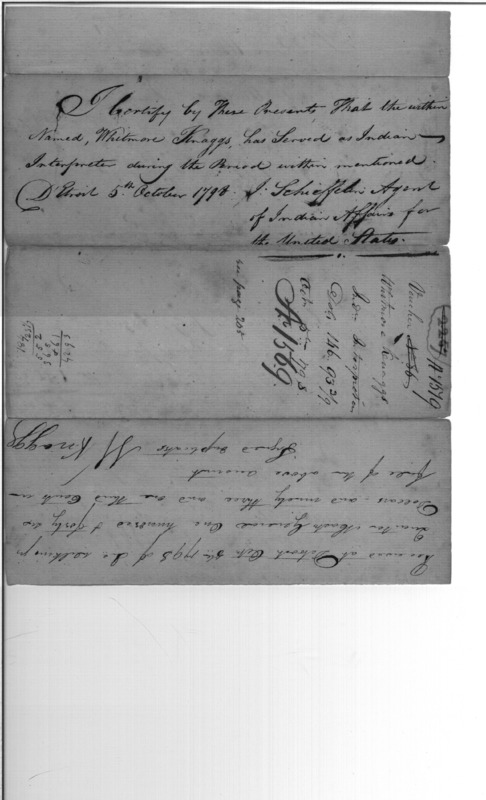 I Certify by These Presents, That the within
Named, Whitmore Knaggs, has Served as Indian
Interpreter during the Period within mentioned.
Detroit 5th October 1798. J. Schieffelin Agent
of Indian Affairs for
the United States.
A 1569
Voucher
Whitmore Knaggs
Indn Interpreter
Dolls 146.93 1/3
Oct 5th 1798
A 1569.
see page 205
Received at Detroit Oct 5th 1798 of Jno Wilkins jr
Quarter Master General One hundred & forty six
Dollars and ninety three and one third Cents in
full of the above account
Signed duplicate W Knaggs